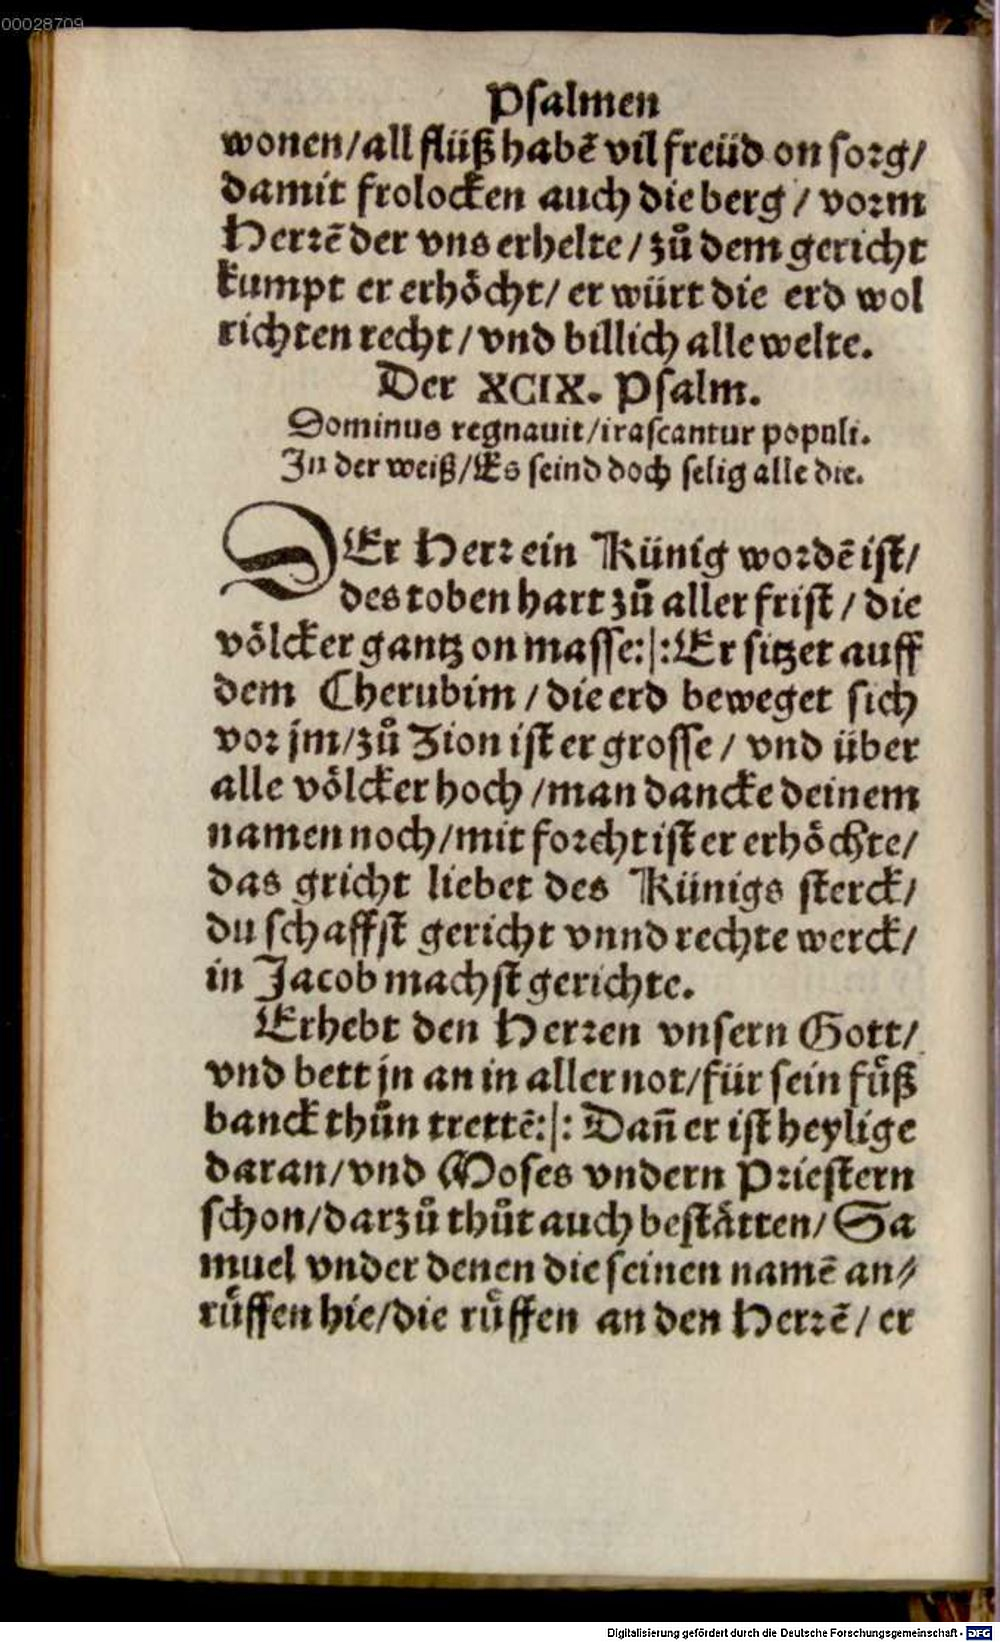 00028709
Psalmen
wonen/all flüß habẽ vil freüd on sorg/
damit frolocken auch die berg / vorm
Herrẽ der vns erhelte / zů dem gericht
kumpt er erhöcht/ er würt die erd wol
richten recht / vnd billich alle welte.
Der XCIX. Psalm.
Dominus regnauit/irascantur populi.
In der weiß/Es seind doch selig alle die.
DEr Herr ein Künig wordẽ ist/
des toben hart zů aller frist / die
völcker gantz on masse:|:Er sitzet auff
dem Cherubim / die erd beweget sich
vor jm/zů Zion ist er grosse / vnd über
alle völcker hoch /man dancke deinem
namen noch/mit forcht ist er erhöchte/
das gricht liebet des Künigs sterck/
du schaffst gericht vnnd rechte werck/
in Jacob machst gerichte.
Erhebt den Herren vnsern Gott/
vnd bett jn an in aller not/für sein fuͤß
banck thůn trettẽ:|: Dañ er ist heylige
daran/vnd Moses vndern Priestern
schon/darzů thůt auch bestätten/ Sa
muel vnder denen die seinen namẽ an⸗
ruͤffen hie/die ruͤffen an den Herrẽ / er
Digitalisierung gefördert durch die Deutsche Forschungsgemeinschaft - DFG